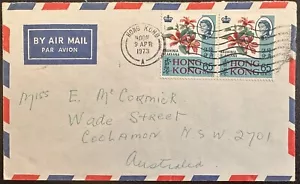 BY AIR MAIL
PAR AVION
HONG KONG
NOON
9 APR
1973
A
HONG KONG
65
HONG KONG
65
Miss E. McCormick
Wade Street
Coolamon NSW 2701
Australia.